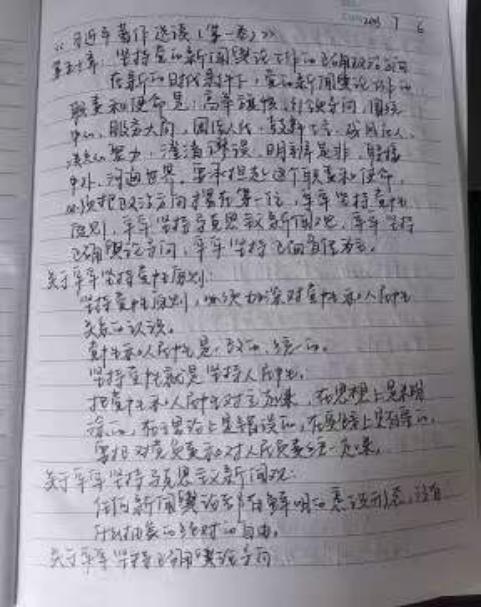 2023 7 6
《习近平著作选读（第一卷）》
坚持党的新闻舆论工作的正确政治方向
在新的时代条件下，党的新闻舆论工作的
职责和使命是：高举旗帜、引领导向，围绕
中心、服务大局，团结人民、鼓舞士气，成风化人、
凝心聚力，澄清谬误、明辨是非，联接
中外、沟通世界。要承担起这个职责和使命，
必须把政治方向摆在第一位，牢牢坚持党性
原则，牢牢坚持马克思主义新闻观，牢牢坚持
正确舆论导向，牢牢坚持正面宣传为主。
关于牢牢坚持党性原则：
坚持党性原则，必须加深对党性和人民性
关系的认识。
党性和人民性是一致的、统一的。
坚持党性就是坚持人民性，
把党性和人民性对立起来，在思想上是糊
涂的，在理论上是错误的，在实践上是有害的。
要把对党负责和对人民负责统一起来。
关于牢牢坚持马克思主义新闻观：
任何新闻舆论都有鲜明的意识形态，没有
什么抽象的绝对的自由。
关于牢牢坚持正确舆论导向